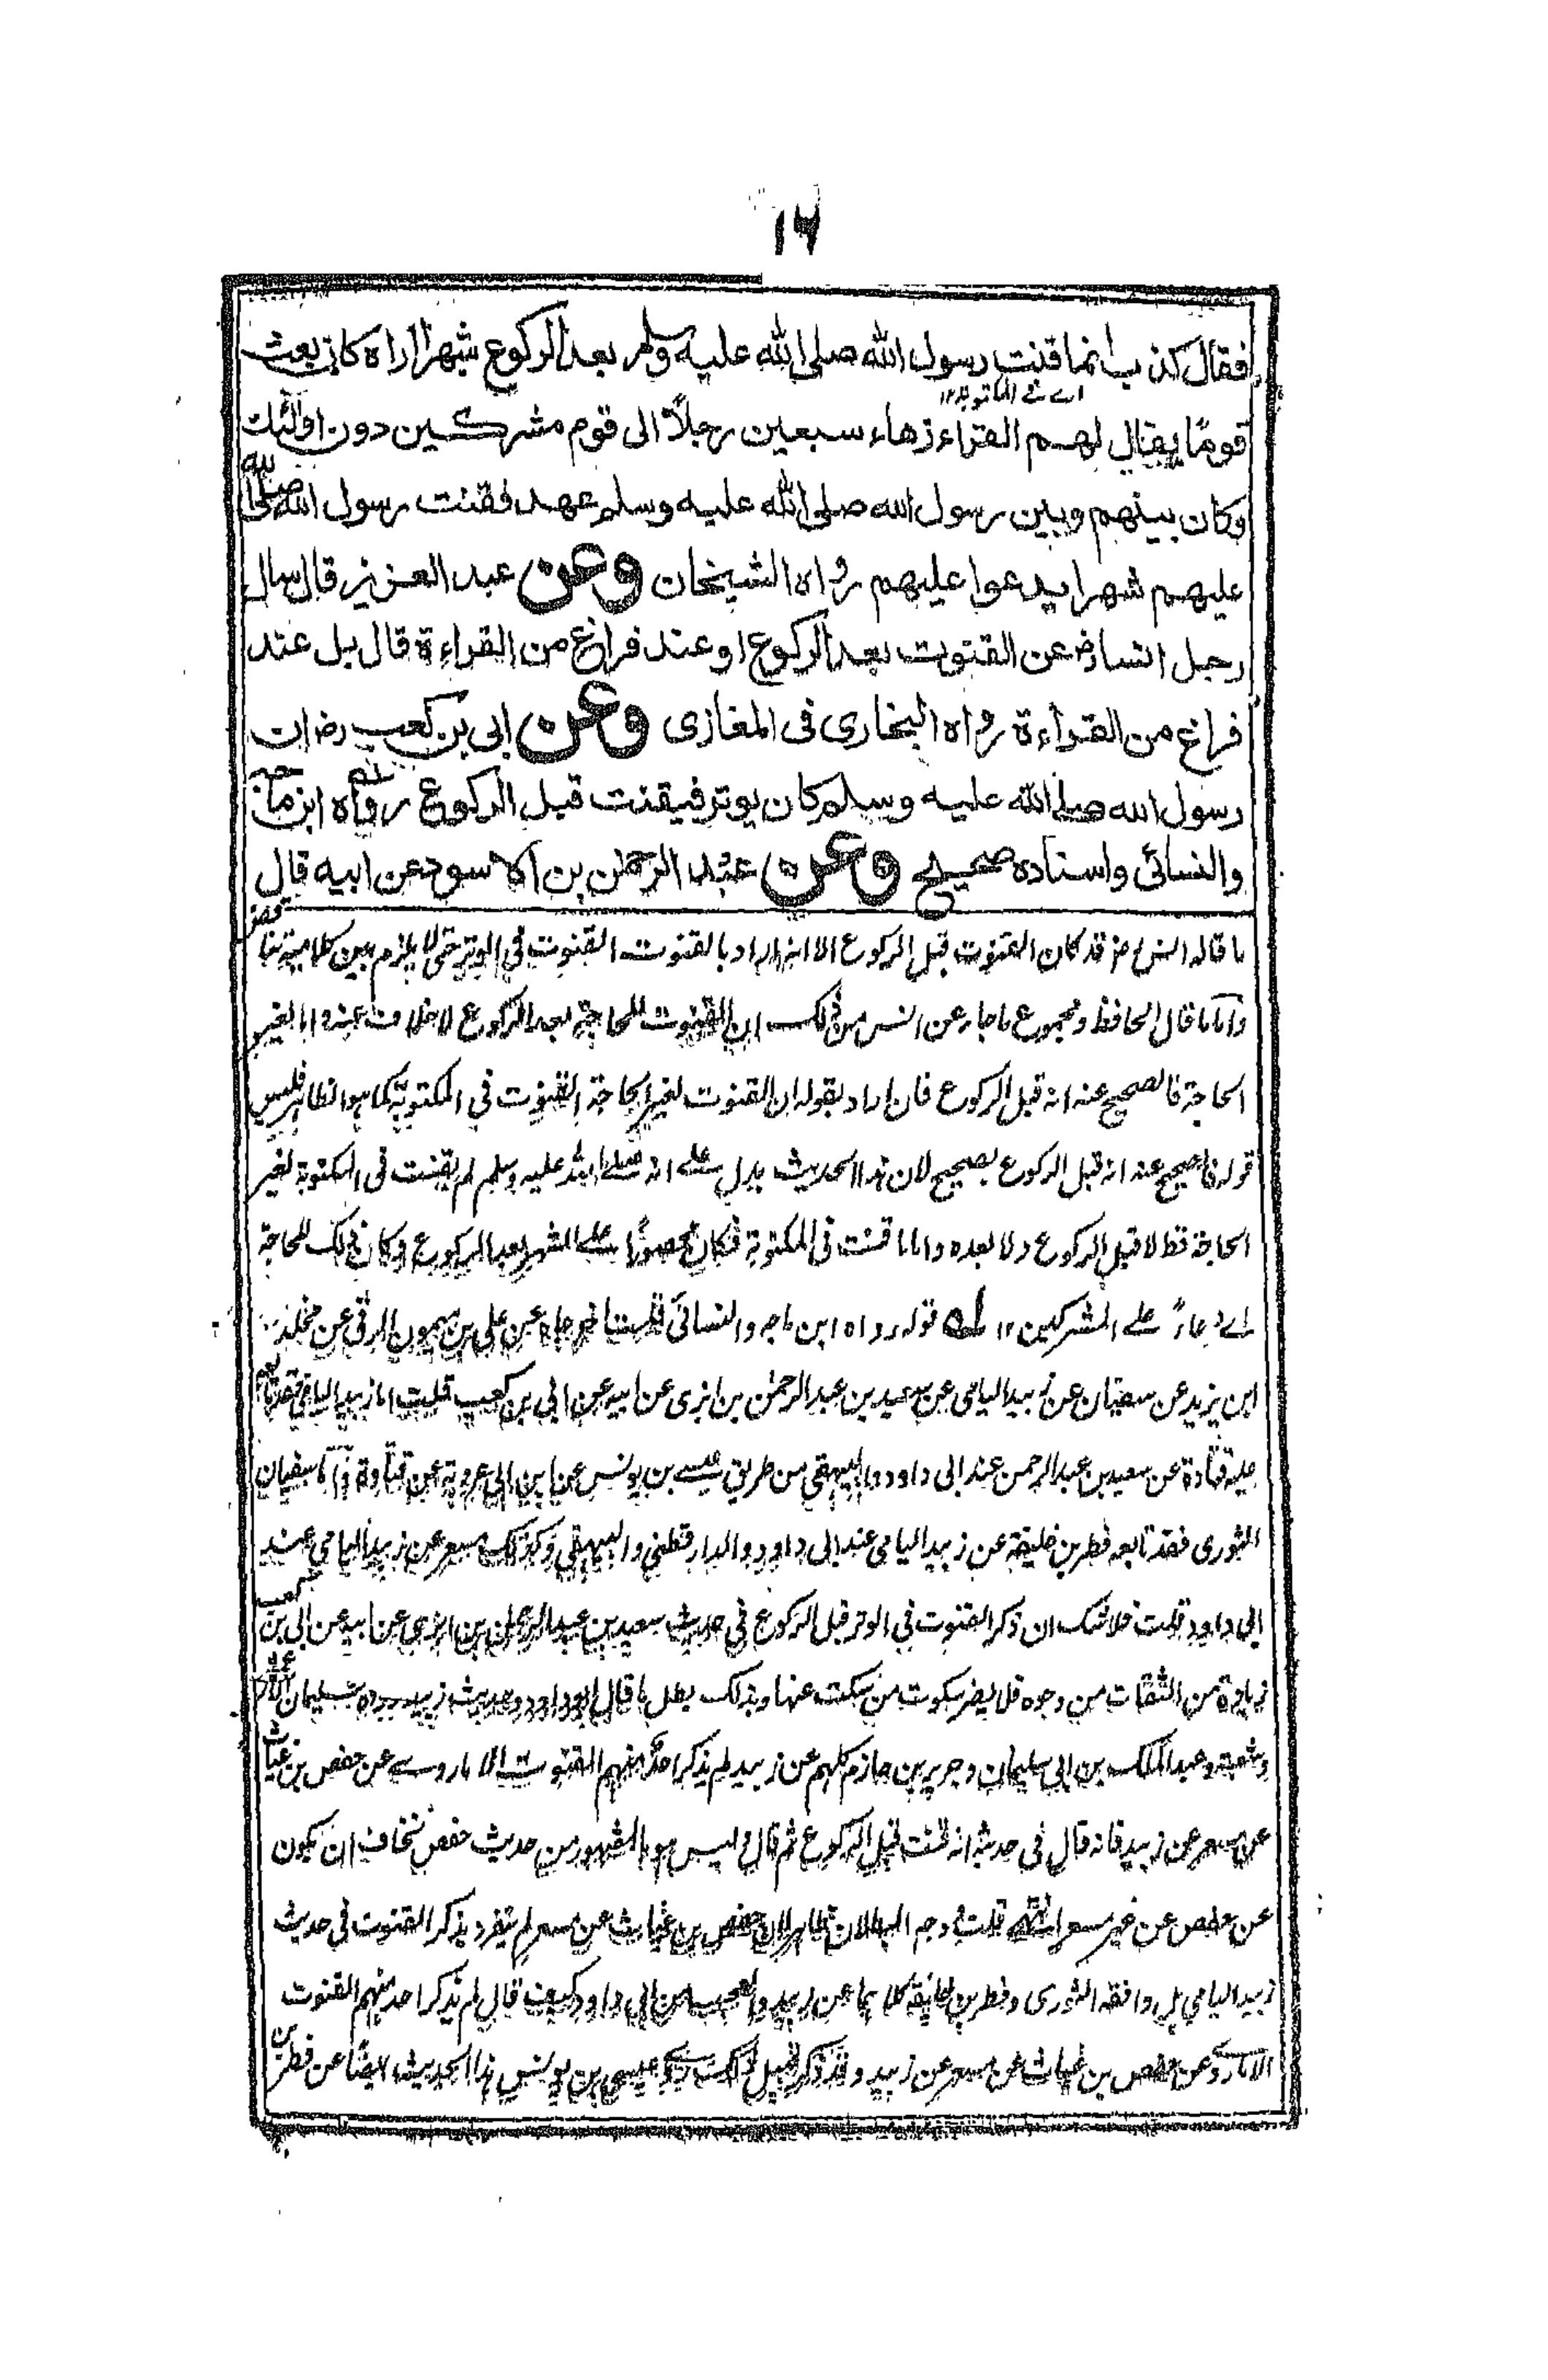 ۱۶
فقال كذب انما قنت رسول الله صلى الله عليه وسلم بعد الركوع شهرا اراه كان بعث
اے فے المكتوبة ۱۲
قومًا يقال لهم القراء زهاء سبعين رجلاً الى قوم مشركين دون اولئك
وكان بينهم وبين رسول الله صلى الله عليه وسلم عهد فقنت رسول الله صلى الله
عليهم شهرا يدعوا عليهم رواه الشيخان وعن عبد العزيز قال سال
رجل انسا رض عن القنوت بعد الركوع او عند فراغ من القراءة قال بل عند
فراغ من القراءة رواه البخارى فى المغازى وعن ابى بن كعب رض ان
رسول الله صلى الله عليه وسلم كان يوتر فيقنت قبل الركوع رواه ابن ماجه
والنسائى واسناده صحيح وعن عبد الرحمٰن بن الاسود عن ابيه قال
ما قاله انس رض قد كان القنوت قبل الركوع الا انه اراد بالقنوت القنوت فى الوتر حتى لا يلزم بين كلاميه تناقض
واما ما قال الحافظ ومجموع ما جاء عن انس من ذلك ان القنوت للحاجة بعد الركوع لا خلاف عنه واما لغير
الحاجة فالصحيح عنه انه قبل الركوع فان اراد بقوله ان القنوت لغير الحاجة القنوت فى المكتوبة كما هو الظاهر فليس
قوله فالصحيح عنه انه قبل الركوع بصحيح لان هذا الحديث يدل علے انه صلے الله عليه وسلم لم يقنت فى المكتوبة لغير
الحاجة قط لا قبل الركوع ولا بعده واما ما قنت فى المكتوبة فكان محصورًا علے الشهر بعد الركوع وكان ذلك للحاجة
اے دعاءً علے المشركين ۱۲ قوله رواه ابن ماجه والنسائى قلت اخرجاه عن على بن ميمون الرقى عن مخلد
ابن يزيد عن سفيان عن زبيد اليامى عن سعيد بن عبد الرحمٰن بن ابزى عن ابيه عن ابى بن كعب قلت اما زبيد اليامى فقد تابعه
عليه قتادة عن سعيد بن عبد الرحمن عند ابى داود والبيهقى من طريق عيسے بن يونس عن ابن ابى عروبة عن قتادة واما سفيان
الثورى فقد تابعه فطر بن خليفة عن زبيد اليامى عند ابى داود والدارقطنى والبيهقى وكذلك مسعر عن زبيد اليامى عند
ابى داود قلت فلا شك ان ذكر القنوت فى الوتر قبل الركوع فى حديث سعيد بن عبد الرحمٰن بن ابزى عن ابيه عن ابى بن كعب
زيادة من الثقات من وجوه فلا يضر سكوت من سكت عنها وبذلك بطل ما قال ابو داود وحديث زبيد رواه سليمان الاعمش
وشعبة وعبد الملك بن ابى سليمان وجرير بن حازم كلهم عن زبيد لم يذكر احد منهم القنوت الا ما روے عن حفص بن غياث
عن مسعر عن زبيد فانه قال فى حديثه انه قنت قبل الركوع ثم قال وليس هو بالمشهور من حديث حفص نخاف ان يكون
عن حفص عن غير مسعر انتهى قلت وجه البطلان ظاهر لان حفص بن غياث عن مسعر لم يتفرد بذكر القنوت فى حديث
زبيد اليامى بل وافقه الثورى وفطر بن خليفة كلاهما عن زبيد والعجب من ابى داود كيف قال لم يذكر احد منهم القنوت
الا ما روى عن حفص بن غياث عن مسعر عن زبيد وقد ذكر قبيل ذلك عيسى بن يونس هذا الحديث ايضًا عن فطر بن